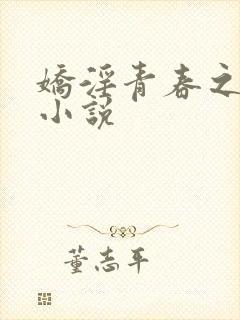 嬌淫青春之
小說
董志平